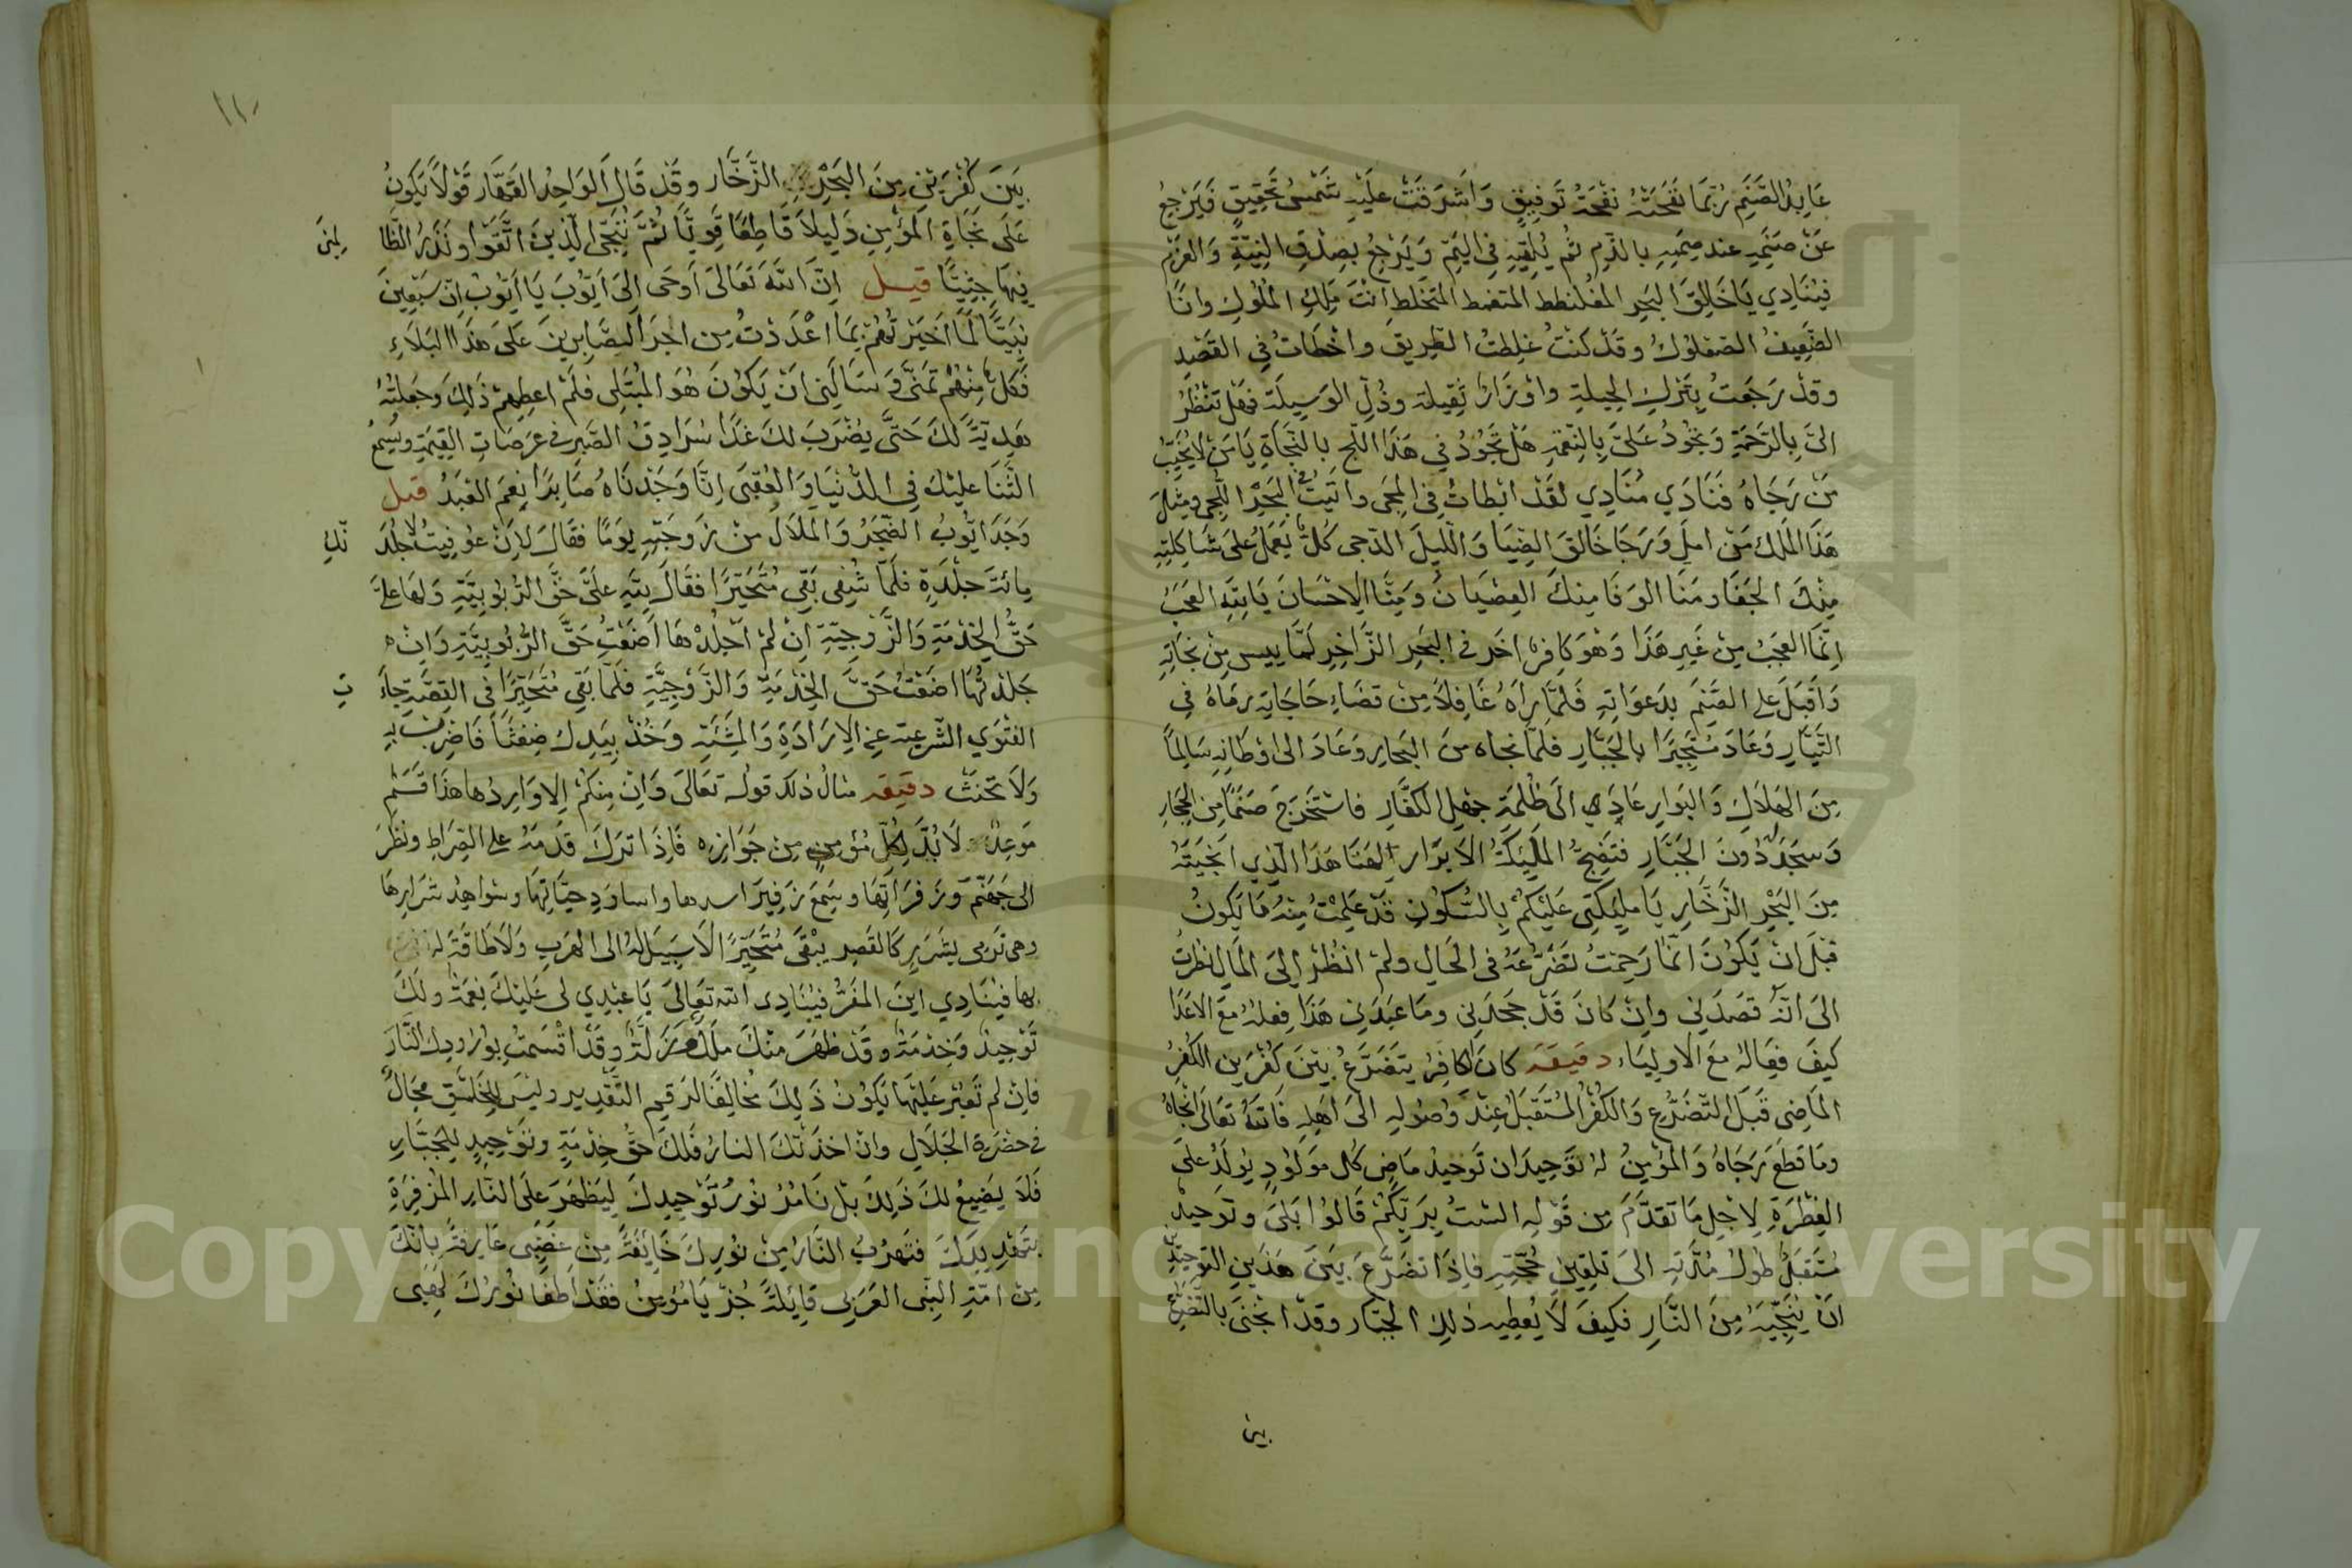 عَابِدُ الصَّنَمِ رُبَّمَا نَفَحَتْهُ نَفْحَةُ تَوفِيقٍ وَاَشرَقَتْ عَلَيْهِ شَمْسُ تَحقِيقٍ فَيَرْجِعُ
عَنْ صَنَمِهِ عند صَمِيمِهِ بالذم ثُم يُلقِيْهِ فِى اليَمِّ وَيَرْجِعُ بِصِدْقِ النِيَّةِ وَالعَزْمِ
فيُنَادِي يَا خَالِقَ البَحرِ المغلنطط المتغمط المتخلط اَنْتَ مَلِكِ المُلُوكِ وانَا
الضَّعِيفُ الصّعلوُكُ وقَدْ كنتُ غلِطتُ الطَّرِيقَ واخْطَاتُ فِي القَصْدِ
وقدْ رَجَعتُ بِتَرْكِ الحِيلةِ واوْزَارٍ ثَقِيلة وذُلِّ الوَسِيلَة فهَل تنْظُرُ
الىَّ بِالرَّحْمَةِ وَتجُودُ عَلىَّ بِالنِعْمَةِ هَل تَجُوُدُ فِي هَذَا اللّج بالنَّجَاةِ يَا مَن لاَيُخَيِّبُ
مَنْ رَجَاهُ فَنَادَي مُنَادِي لقَدْ ابْطاتُ فِى المجى واتَيتُ فى البَحْرِ اللجى ومِثلَ
هَذَا المَلك مَن امِلَ وَرَجَا خَالِقَ الضِّيَا وَاللّيلَ الدّجى كُلٌّ يَعمَلُ علىَ شَاكِلتِهِ
مِنْكَ الجَفَا ومَنَا الوَفَا مِنكَ العِصْيَانُ وَمِنَّا الاِحْسَانَ يَا لِلّهِ العَجَبُ
اِنَّمَا العَجَبُ مِنْ غَيرِ هَذَا وَهْوَ كافِرٌ اخَر فى البَحرِ الزَّاخِرِ لَمَّا يِيس مِن نجَاتِهِ
وَاَقبَلَ علىِ الصَّنَم بدَعوَاتِهِ فَلمَّا رَاهُ غَافِلاً مِنْ قضَاءِ حَاجَاتِهِ رمَاهُ فِي
التَّيَّارِ وَعَادَ مُسْتجِيرًا بالجَبَّارِ فلمّا نجاه منَ البَحارِ وَعَادَ الى اوْطَانِهِ سَالِمًا
مِنَ الهَلاَكِ وَالبَوَارِ عَادَ الَى ظُلمَةِ جهْلِ الكفَّارِ فاستَخرَجَ صَنَمًا مِنِ الحِجَارِ
وَسجَدَ دُونَ الجَبَّارِ فتَضِجُّ المَلَيِكَةُ الاَبرَار الهَنا هَذَا الَّذِي انجَيتَهُ
مِنَ البَحْرِ الزَّخَّارِ يَا مليِكتِى عَلَيْكمْ بِالسُّكوُنِ قَدْ عَلِمْتُ مِنْهُ مَا يَكونُ
قبْلَ انْ يَكوُنَ انَّما رَحِمْتُ تضَرُّعَهُ فى الحَالِ ولمْ انظُرْ إلىَ المَالِ نظَرْتُ
الىَ انَّهُ قصَدَنِي وانْ كانَ قَدْ جحَدَنِى ومَا عَبدَنِى هَذَا فِعلهُ مَعَ الاَعْدَا
كيفَ فِعَالهُ معَ الاَوليَاء دقيقَة كانَ الكافِرُ يتَضَرَّعُ بَينَ كُفرَينِ الكُفرُ
المَاضِى قَبَل التّضَرُّع وَالكُفرُ المُسْتَقبَلُ عِنْدَ وُصُولِهِ الَى اَهلِهِ فَاللّهُ تَعَالَى انجَاهُ
ومَا قطَعَ رَجَاهُ وَالمؤمِنُ لهُ تَوحِيدَانِ تَوحِيدُ مَاضٍ كل مَوْلُودٍ يوُلَدُ عَلىَ
الفِطْرَةِ لاِجْلِ مَا تَقَدَّمَ مِن قَوْلِهِ السْتُ بِرَبّكُمْ قَالوُا بَلَىَ وتَوحِيدُ
مُستَقبَلُ طوُلُ مُدّتِهِ الىَ تلقِيَنِ حُجّتِهِ فاِذَا تضَرَّعَ بَينَ هَذَينِ التَوحِيدَيْنِ
انْ يُنَجِّيَهُ مِنَ النَّارِ فكيفَ لاَ يُعطِيهِ ذلِكِ الجبّار وقدْ انجَى بالتَّضَرُّعِ
بين
١١٠
بَينَ كُفْرَيْنِ مِنَ البَحْرِ الزَّخَّار وقَدْ قَالَ الوَاحِدُ القَهَّار قَوْلاً يَكونُ
عَلَى نجَاةِ المُؤمِنِ دَلِيلاً قَاطِعًا قَوِيًّا ثُمَّ نُنَجّى الَّذِينَ اتَّقَوْا ونَذَرُ الظَّا لمِينَ
فِيهَا جِثِيًّا قيل اِنّ اللّهَ تَعَالىَ اَوحَى الىَ اَيُّوبَ يَا اَيّوُبُ اِنّ سَبْعِينَ
نَبِيًّا لَمَّا اَخبَرْتُهُمْ بِمَا اَعْدَدْتُ مِن اجرِ الصَّابِرِينَ عَلىَ هَذَا البَلَاءِ
فَكلٌّ مِنْهُمْ تَمَنَّى وَسَالَنِى انْ يَكوُنَ هُوَ المُبْتَلى فلَمْ اعطِهِمْ ذَلِكَ وَجَعَلتُهُ
هدِيّةً لَكَ حَتَّى يُضْرَبَ لكَ غَدًا سُرَادِقُ الصَّبرِ فى عَرَصَاتِ القِيمَةِ ويُسمعُ
الثَّنَا علَيْكَ فِي الدُّنيَا وَالعُقبَى اِنَّا وَجَدْنَاهُ صَابِرًا نِعمَ العَبْدُ قيل
وَجَدَ ايّوبُ الضّجَرُ وَالمَلاَلَ مِنْ زَوجَتِهِ يَومًا فقَالَ لاِنْ عوُفِيتُ لاجْلدَ نَّكِ
مِائةَ جلْدَةٍ فلمَّا شُفِى بَقِى مُتَحَيّرًا فقَالَ لِلّهِ علىَّ حَقُّ الرُّبُوبِيَّةِ ولهَا علىَّ
حَقُّ الخِدْمَةِ وَالزَّوجِيّةِ اِنْ لمْ اجلِدْهَا اَضَعْتُ حَقَّ الرُّبُوبِيَّةِ وَاِنْ
جَلدْتُهَا اضَعْتُ حَقَّ الخِدْمَةِ وَالزَّوْجِيَّةِ فلَمّا بَقِي مُتَحَيّرًا فى القِصَّةِ جاءَ تِ
الفَتْوَي الشَّرعِية عَنِ الاِرَادَةِ وَالمَشِيَّةِ وَخُذْ بِيَدِكَ ضِغثًا فَاضْرِبْ بِهِ
وَلاَ تَحْنَثْ دقيقه مثالُ ذلكَ قولُه تعَالىَ وَاِنْ مِنكمْ اِلاوَارِدُها هذَا قَسَمٌ
مَوعِدٌ لاَبُدَّ لِكُلّ مُؤمِنٍ مِنْ جَوَازِهِ فَاِذَا تَرَكَ قدَمَهُ علىِ الصِّراطِ ونظَرَ
الى جَهنَّمَ وَزَفرَاتِهَا وسَمِعَ زَفِيرَ اسدها واساوِدِ حيَّاتِهَا وشَواهِدُ شرَارِها
وهى تَرمى بشَرَرٍ كَالقَصرِ يبْقَى مُتحَيّرًا لاَ سَبِيلَ لهُ الى الهَرَبِ وَلاَ طَاقَةَ لهُ
بها فيُنَادِي اينَ المَفَرُّ فيُنَادِى اللّه تَعَالىَ يَا عَبْدِي لى عَليْكَ نِعمَةٌ ولكَ
تَوْحِيدٌ وَخِدْمَةٌ وقدْ ظهَرَ مِنْكَ زَلَّةٌ وقَدْ اَقْسَمتُ بوُرُودِكَ النَّارَ
فاِنْ لم تَعْبُرْ عَليْهَا يَكونُ ذَلِكَ مُخَالِفًا لرَقِيمِ التَّقدِيرِ وليْسَ لِلخَلْقِ مَجَالٌ
فى حضْرَةِ الجَلاَلِ وانْ اخذَتْكَ النارُ فلَكَ حَقُّ خِدْمَةٍ وتوَْحِيدٍ لِلجَبَّارِ
فَلاَ يَضِيعُ لكَ ذَلِكَ بلْ نَامُرُ نوُرُ تَوْحِيدِكَ لِيَظهَرَ عَلَى النَّارِ المُزفِرَةِ
بتَهْدِيدِكَ فتَهرُبُ النَّارُ مِنْ نوُرِكَ خَايِفَةً مِنْ غَضَبِى عَارِفةً بِانّكَ
مِنْ امّةِ النَّبِى العَرَبِى قايِلَةً جُزْ يَا مُؤمِنُ فقَدْ اَطفَا نوُرُكَ لهبِى
Copyright © King Saud University